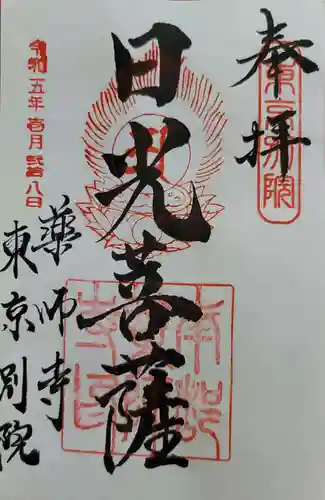 奉拝
東京別院
日光菩薩
令和五年壱月弐十八日
薬師寺
東京別院